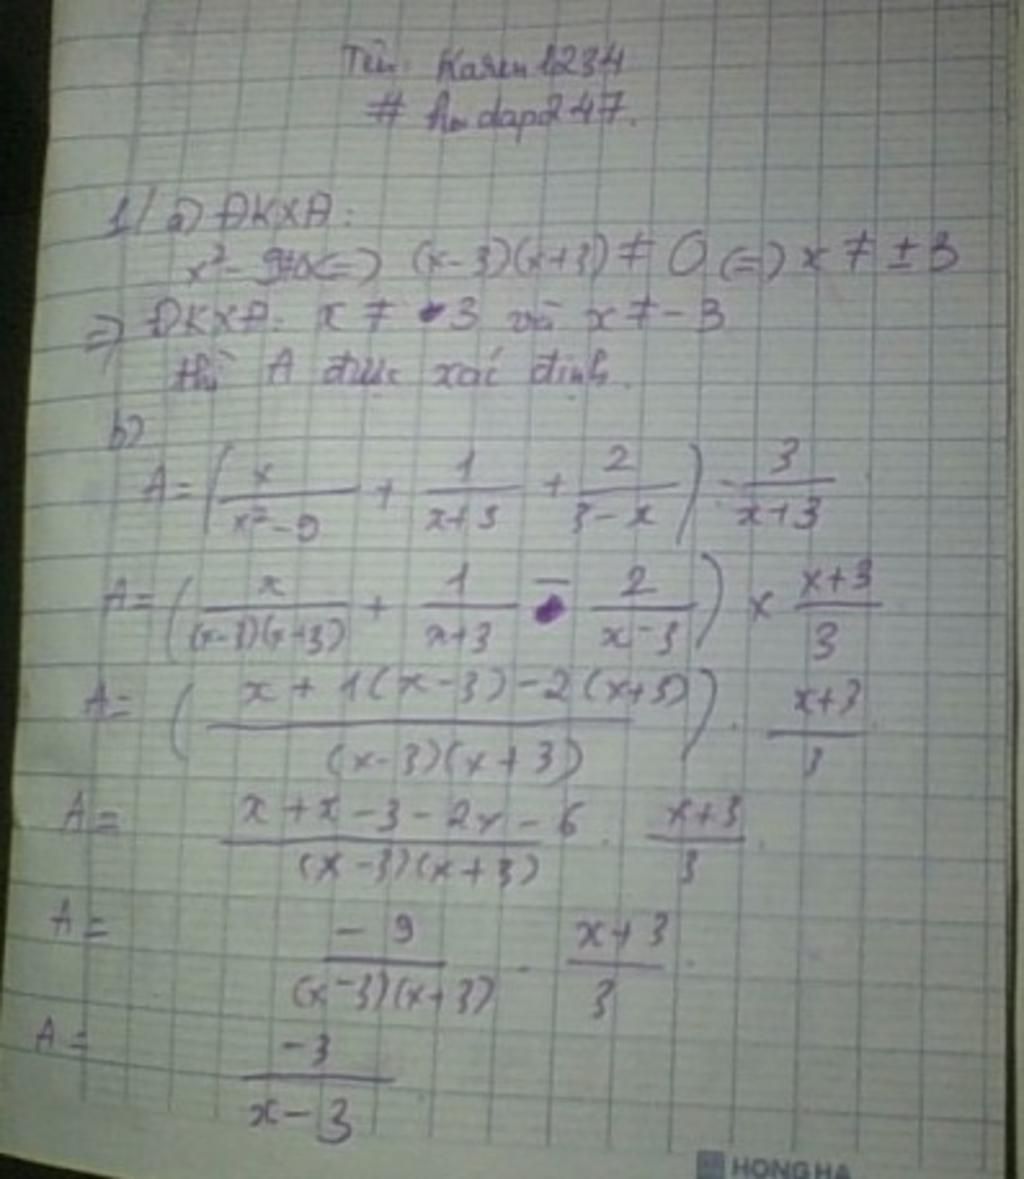 Tên: Karen1234
# hoidap247.
1/ a) ĐKXĐ:
x² - 9 ≠ 0 <=> (x-3)(x+3) ≠ 0 <=> x ≠ ± 3
=> ĐKXĐ: x ≠ 3 và x ≠ - 3
thì A được xác định.
b)
A = ( x/(x² - 9) + 1/(x+3) + 2/(3-x) ) : 3/(x+3)
A = ( x/((x-3)(x+3)) + 1/(x+3) - 2/(x-3) ) × (x+3)/3
A = ( (x + 1(x-3) - 2(x+3))/((x-3)(x+3)) ) . (x+3)/3
A = (x + x - 3 - 2x - 6)/((x-3)(x+3)) . (x+3)/3
A = -9/((x-3)(x+3)) . (x+3)/3
A = -3/(x-3)
HONG HA